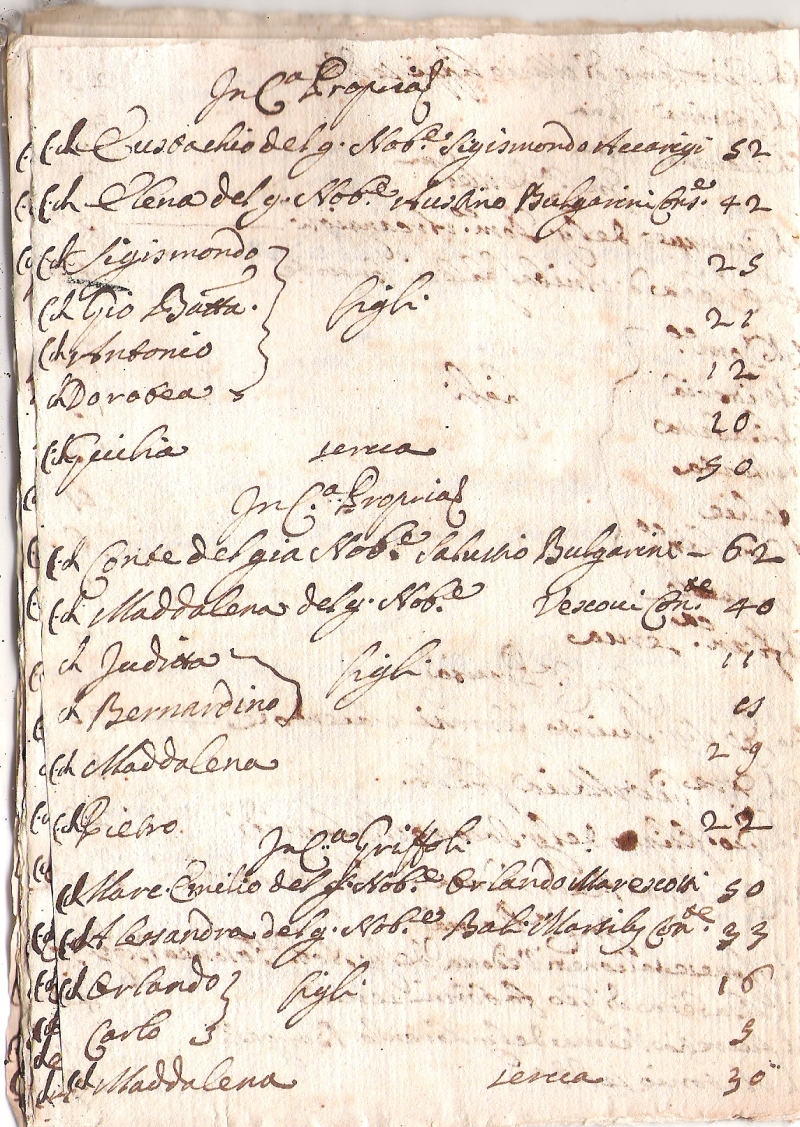 In C.a Propria
C. ch Eustachio del q. Nob.e Sigismondo Accarigi 52
C. ch Elena del q. Nob.e Austino Bulgarini Cons.e 42
C. ch Sigismondo 25
C. ch Gio Batta. figli. 21
C. ch Antonio 12
ch Dorotea 20
C. ch Cicilia serva 50
In C.a Propria
C. ch Conte del gia Nob.e Salustio Bulgarini - 62
C. ch Maddalena del q. Nob.e Vescovi Con.te 40
ch Juditta figli. 11
ch Bernardino
C. ch Maddalena 29
C. ch Pietro 22
In C.a Griffoli.
C. ch Marc. Emilio del q. Nob.e Orlando Marescotti 50
C. ch Alessandra del q. Nob.e Bali. Marsilij Con.te 33
C. ch Orlando figli 16
Carlo 5
C. ch Maddalena serva 30